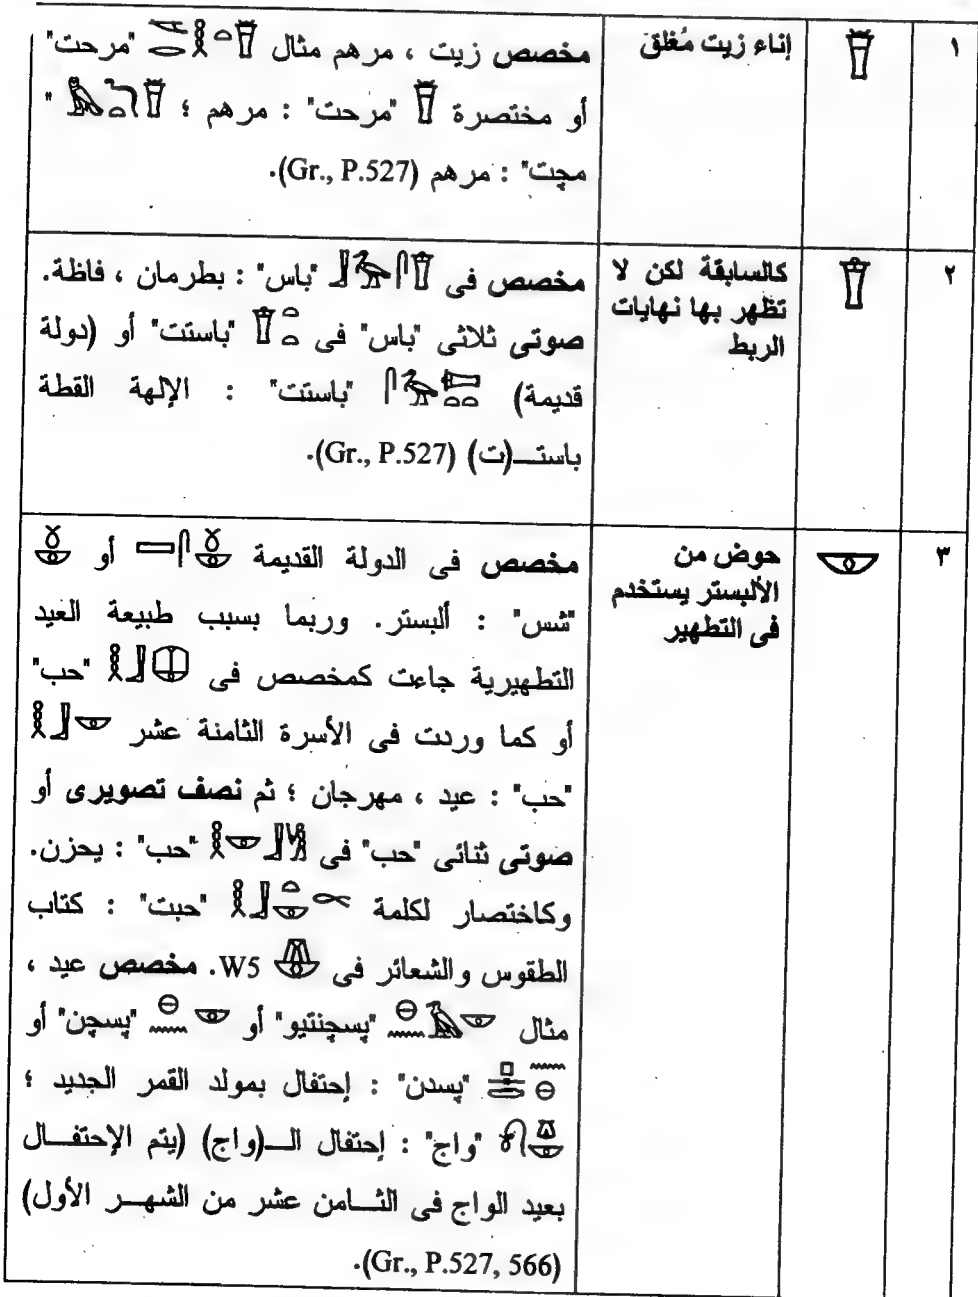 ١ 𓎯 إناء زيت مُغلق
مخصص زيت ، مرهم مثال "مرحت"
أو مختصرة "مرحت" : مرهم ؛ "
مچت" : مرهم (Gr., P.527).
٢ 𓎰 كالسابقة لكن لا
تظهر بها نهايات
الربط
مخصص فى "باس" : بطرمان ، فاظة.
صوتى ثلاثى "باس" فى "باستت" أو (دولة
قديمة) "باستت" : الإلهة القطة
باستـــ(ت) (Gr., P.527).
٣ 𓎱 حوض من
الألبستر يستخدم
فى التطهير
مخصص فى الدولة القديمة أو
"شس" : ألبستر. وربما بسبب طبيعة العيد
التطهيرية جاءت كمخصص فى "حب"
أو كما وردت فى الأسرة الثامنة عشر
"حب" : عيد ، مهرجان ؛ ثم نصف تصويرى أو
صوتى ثنائى "حب" فى "حب" : يحزن.
وكاختصار لكلمة "حبت" : كتاب
الطقوس والشعائر فى W5. مخصص عيد ،
مثال "پسچنتيو" أو "پسچن" أو
"پسدن" : إحتفال بمولد القمر الجديد ؛
"واج" : إحتفال الــ(واج) (يتم الإحتفــال
بعيد الواج فى الثــامن عشر من الشهــر الأول)
(Gr., P.527, 566).